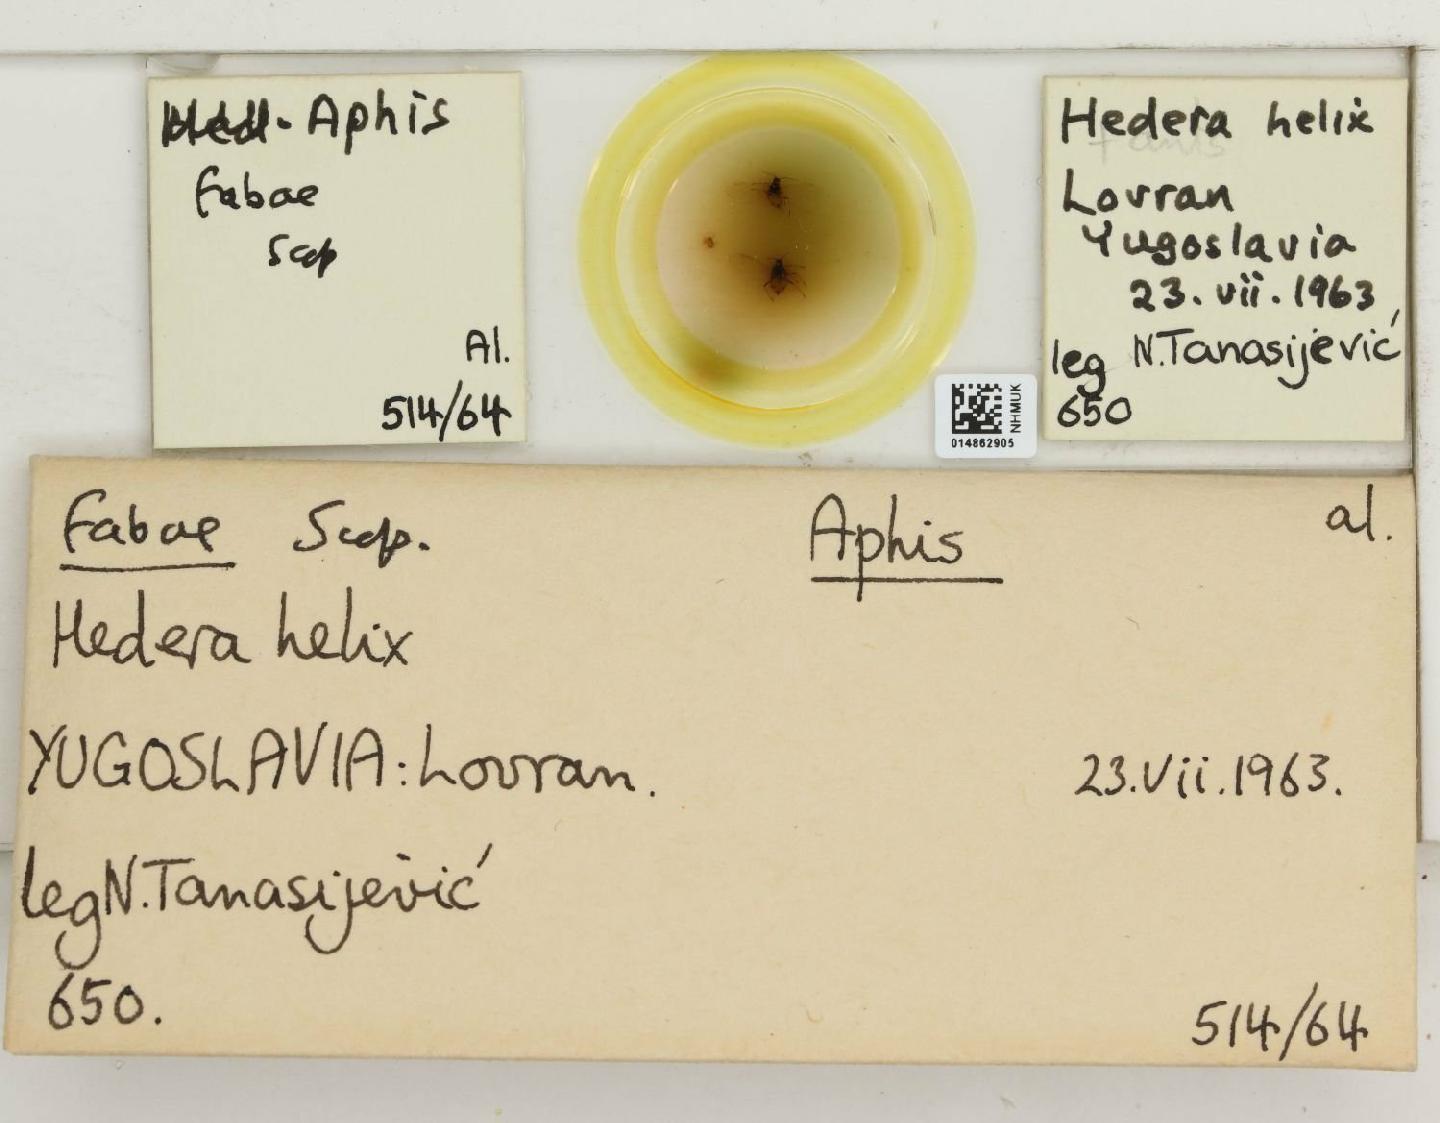 Aphis
fabae
Scop
Al.
514/64
NHMUK
014862905
Hedera helix
Lovran
Yugoslavia
23.vii.1963
leg N.Tanasijević
650
fabae Scop. Aphis al.
Hedera helix
YUGOSLAVIA: Lovran. 23.Vii.1963.
leg N.Tanasijević
650. 514/64